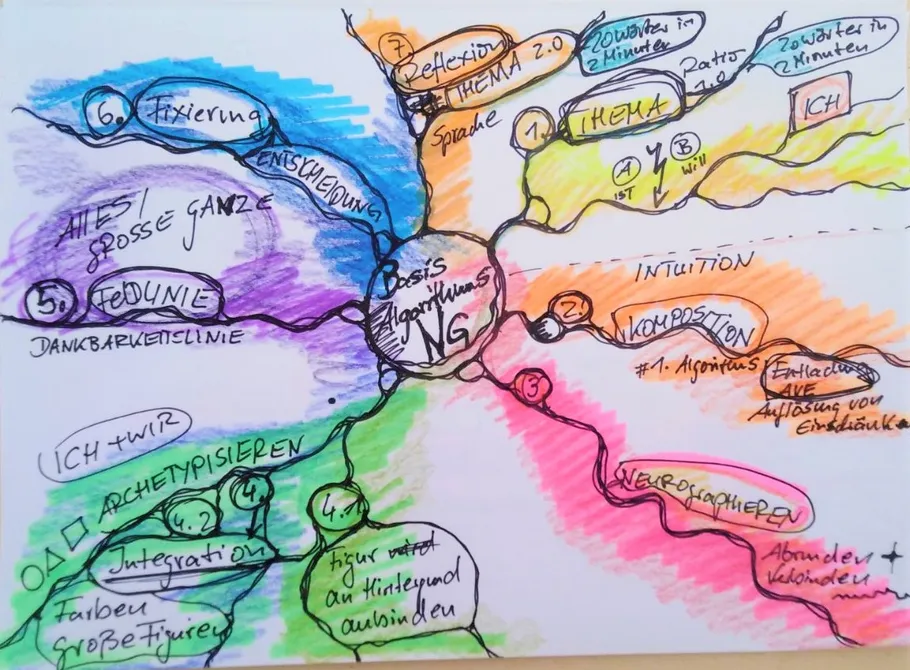 Basis
Algorithmus
NG
1.
THEMA
Ratio
1.0
20 Wörter in
2 Minuten
ICH
A
IST
B
Will
INTUITION
2.
KOMPOSITION
#1. Algorithmus
Entladung
AVE
Auflösung von
Einschränk
3
NEUROgraphieren
Abrunden
Verbinden
4.
4.1
Figur wird
an Hintergrund
anbinden
4.2
Integration
ARCHETYPISIEREN
ICH + WIR
Farben
große Figuren
5.
FeDUNIE
DANKBARKEITSLINIE
AllES/
GROSSE GANZE
6.
Fixierung
ENTSCHEIDUNG
7
Reflexion
THEMA 2.0
Sprache
20 Wörter in
2 Minuten